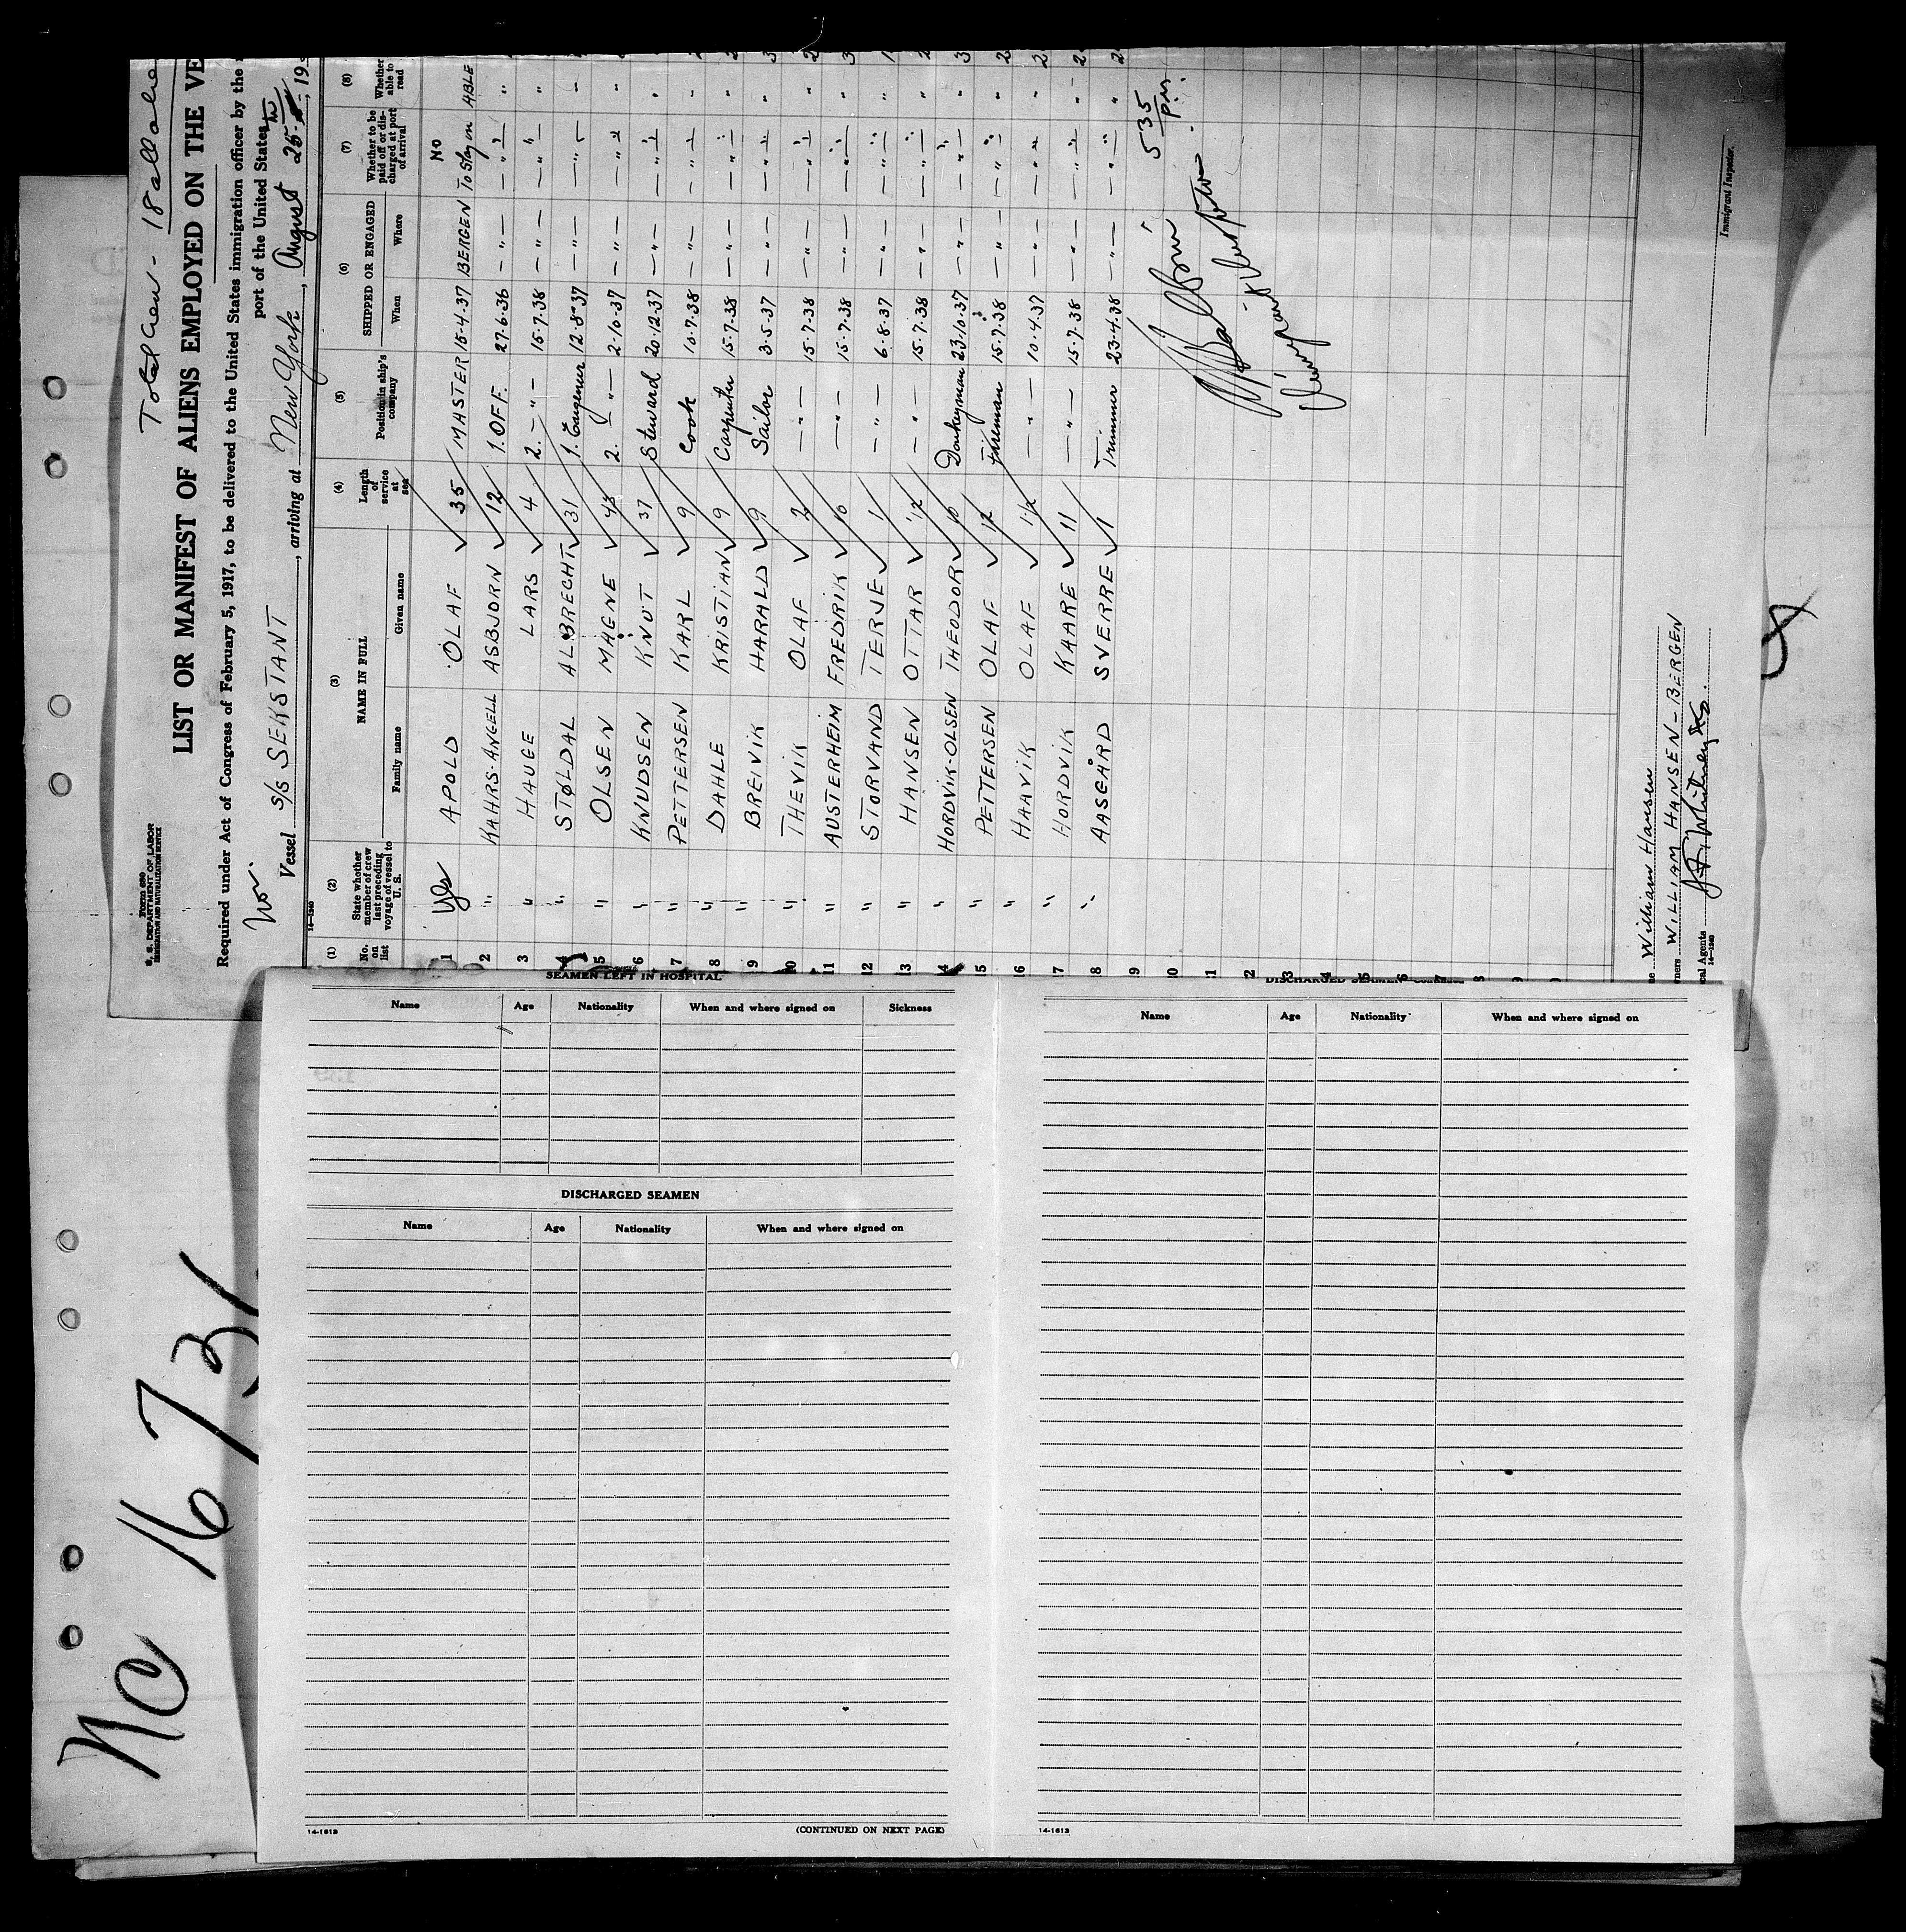 Total Crew - 18 all aliens
Form 680
U. S. DEPARTMENT OF LABOR
IMMIGRATION AND NATURALIZATION SERVICE
LIST OR MANIFEST OF ALIENS EMPLOYED ON THE VE
Required under Act of Congress of February 5, 1917, to be delivered to the United States immigration officer by the
port of the United States
Nor.
Vessel S/S SEKSTANT, arriving at New York, August 25, 19
14-1240
(1) (2) (3) (4) (5) (6) (7) (8)
No. on list State whether member of crew last preceding voyage of vessel to U. S. NAME IN FULL Family name Given name Length of service at sea Position in ship's company SHIPPED OR ENGAGED When Where Whether to be paid off or discharged at port of arrival Whether able to read
1 Yes APOLD OLAF 35 MASTER 15-4-37 BERGEN NO To Stay on ABLE
2 " KAHRS-ANGELL ASBJORN 12 1. OFF. 27-6-36 - " - - " - "
3 " HAUGE LARS 4 2. - " - 15-7-38 - " - - " - "
4 " STØLDAL ALBRECHT 31 1. Engeneer 12-8-37 - " - - " - "
5 " OLSEN MAGNE 2. - " - 2-10-37 - " - - " - "
6 " KNUDSEN KNUT 37 Steward 20-12-37 - " - - " - "
7 " PETTERSEN KARL 9 Cook 10-7-38 - " - - " - "
8 " DAHLE KRISTIAN 9 Carpenter 15-7-38 - " - - " - "
9 " BREIVIK HARALD 9 Sailor 3-5-37 - " - - " - "
10 " THEVIK OLAF 2 - " - 15-7-38 - " - - " - "
11 " AUSTERHEIM FREDRIK 10 - " - 15-7-38 - " - - " - "
12 " STORVAND TERJE 1 - " - 6-8-37 - " - - " - "
13 " HANSEN OTTAR 1/2 - " - 15-7-38 - " - - " - "
14 " HORDVIK-OLSEN THEODOR 10 Donkeyman 23-10-37 - " - - " - "
15 " PETTERSEN OLAF 12 Fireman 15-7-38 - " - - " - "
16 " HAAVIK OLAF 1 1/2 - " - 10-4-37 - " - - " - "
17 " HORDVIK KAARE 11 - " - 15-7-38 - " - - " - "
18 " AASGÅRD SVERRE 1 Trimmer 23-4-38 - " - - " - "
9
10
1
2
3
4
5
6
7
8
9
5 35 P.M.
Immigrant Inspector
William Hansen
ners WILLIAM HANSEN - BERGEN
cal Agents J. F. Whitney & Co.
14-1240
Immigrant Inspector.
NC 1673
SEAMEN LEFT IN HOSPITAL
Name Age Nationality When and where signed on Sickness
DISCHARGED SEAMEN
Name Age Nationality When and where signed on
14-1613
(CONTINUED ON NEXT PAGE)
DISCHARGED SEAMEN—Continued
Name Age Nationality When and where signed on
14-1613